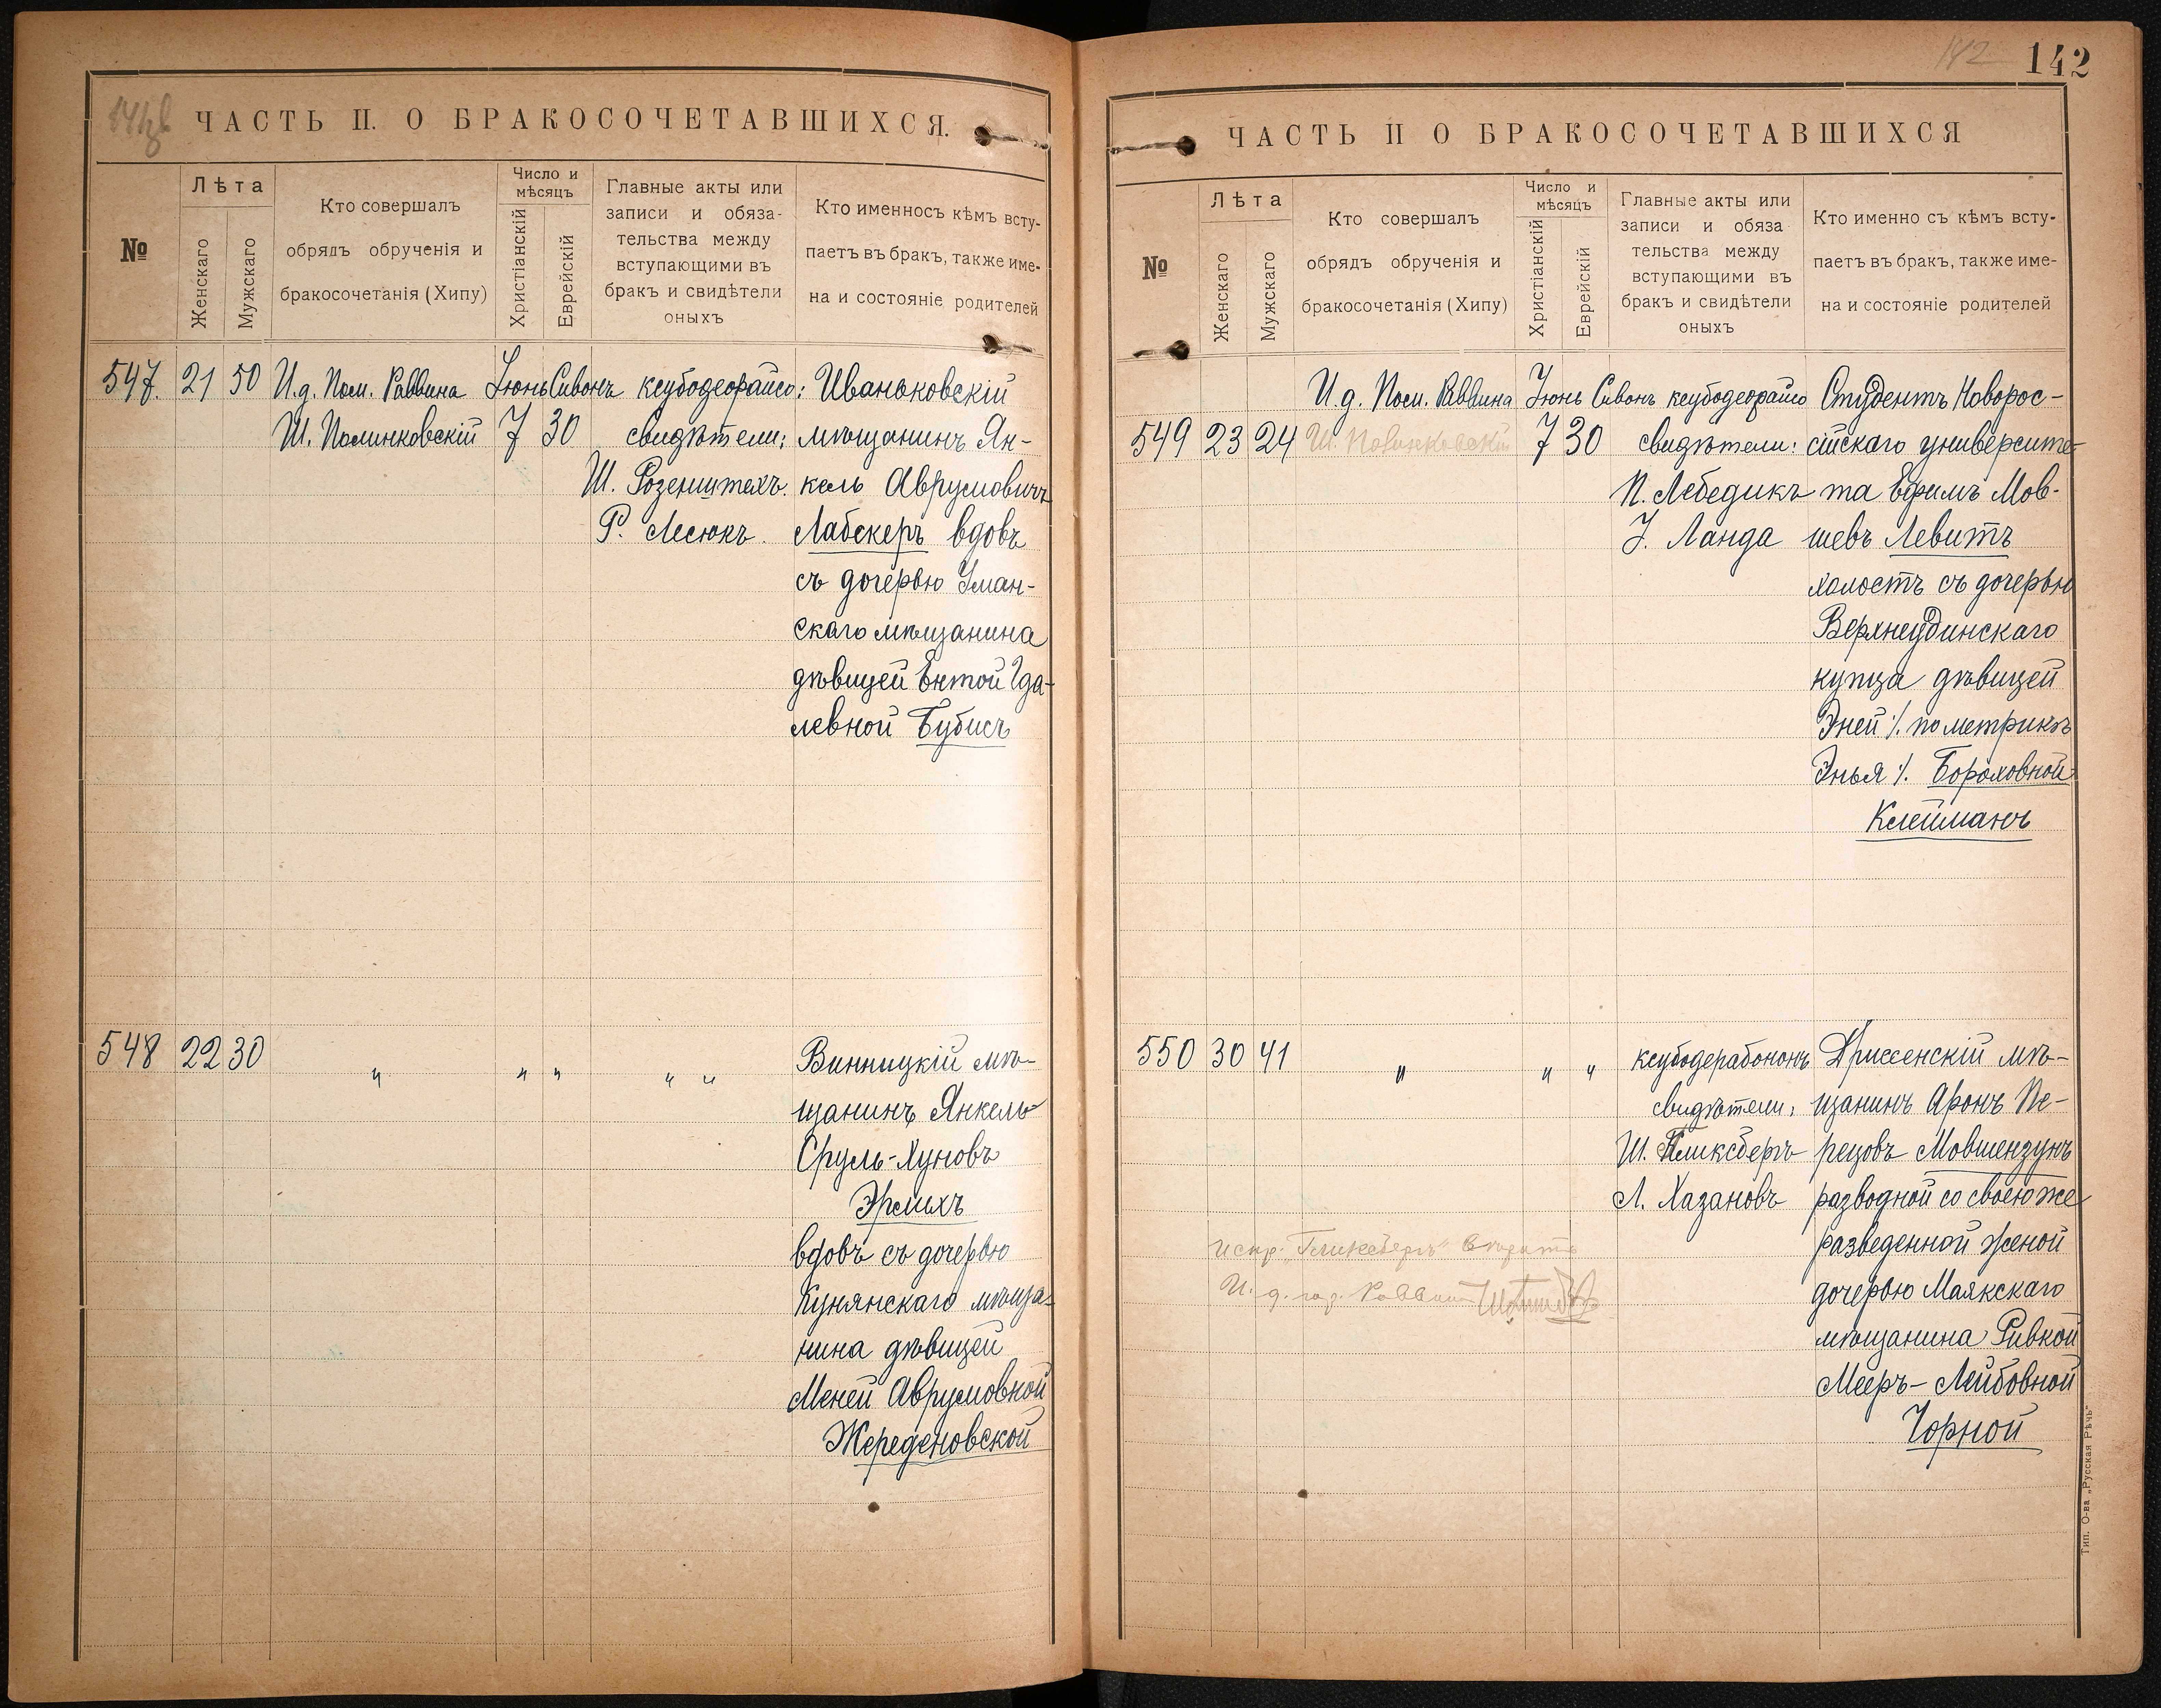 ЧАСТЬ II. О БРАКОСОЧЕТАВШИХСЯ.
№
Лѣта
Женскаго
Мужскаго
Кто совершалъ
обрядъ обрученія и
бракосочетанія (Хипу)
Число и
мѣсяцъ
Христіанскій
Еврейскій
Главные акты или
записи и обяза-
тельства между
вступающими въ
бракъ и свидѣтели
оныхъ
Кто именносъ кѣмъ всту-
паетъ въ бракъ, также име-
на и состояніе родителей
547. 21 50
И.д. Пом. Раввина
Ш. Полинковскій
Іюнь Сивонъ
7 30
ксубодеорайсо:
свидѣтели:
Ш. Розенштехъ.
Р. Лесюкъ.
Иваньковскій
мѣщанинъ Ян-
кель Аврумовичъ
Лабскеръ вдовъ
съ дочерью Уман-
скаго мѣщанина
дѣвицей Ентой Гда-
левной Бубисъ
548 22 30
" " " " "
Винницкій мѣ-
щанинъ Янкель-
Сруль-Хуновъ
Эрлихъ
вдовъ съ дочерью
Кунянскаго мѣща-
нина дѣвицей
Меней Аврумовной
Жереденовской
142
ЧАСТЬ II О БРАКОСОЧЕТАВШИХСЯ
№
Лѣта
Женскаго
Мужскаго
Кто совершалъ
обрядъ обрученія и
бракосочетанія (Хипу)
Число и
мѣсяцъ
Христіанскій
Еврейскій
Главные акты или
записи и обяза
тельства между
вступающими въ
бракъ и свидѣтели
оныхъ
Кто именно съ кѣмъ всту-
паетъ въ бракъ, также име-
на и состояніе родителей
549 23 24
И.д. Пом. Раввина
Ш. Полинковскій
Іюнь Сивонъ
7 30
ксубодеорайсо
свидѣтели:
П. Лебедикъ
І. Ланда
Студентъ Новорос-
сійскаго университе-
та Ефимъ Мов-
шевъ Левитъ
холостъ съ дочерью
Верхнеудинскаго
купца дѣвицей
Эней ./. по метрикѣ
Энья ./. Бороховной
Клейманъ
550 30 41
" " "
ксубодерабононъ
свидѣтели:
Ш. Гликсбергъ
Л. Хазановъ
Дриссенскій мѣ-
щанинъ Аронъ Пе-
рецовъ Мовшензунъ
разводной со своею же
разведенной женой
дочерью Маякскаго
мѣщанина Ривкой
Мееръ-Лейбовной
Чорной
испр. "Гликсбергъ" вѣрить
И. д. гор. Раввина
Тип. О-ва „Русская Рѣчь"